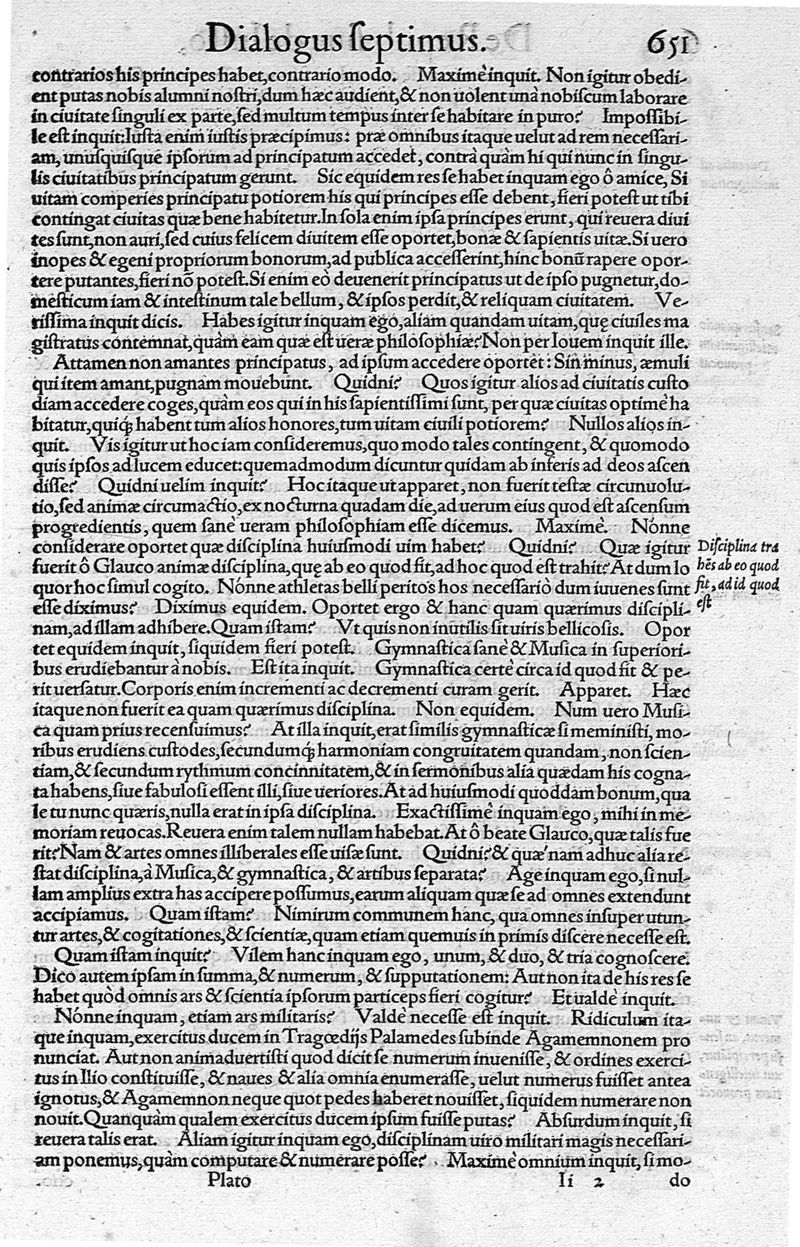 Dialogus septimus. 651
contrarios his principes habet, contrario modo. Maximè inquit. Non igitur obedi-
ent putas nobis alumni nostri, dum hæc audient, & non uolent unà nobiscum laborare
in ciuitate singuli ex parte, sed multum tempus inter se habitare in puro? Impossibi-
le est inquit: Iusta enim iustis præcipimus: præ omnibus itaque uelut ad rem necessari-
am, unusquisque ipsorum ad principatum accedet, contrà quàm hi qui nunc in singu-
lis ciuitatibus principatum gerunt. Sic equidem res se habet inquam ego ô amice, Si
uitam comperies principatu potiorem his qui principes esse debent, fieri potest ut tibi
contingat ciuitas quæ bene habitetur. In sola enim ipsa principes erunt, qui reuera diui
tes sunt, non auri, sed cuius felicem diuitem esse oportet, bonæ & sapientis uitæ. Si uero
inopes & egeni propriorum bonorum, ad publica accesserint, hinc bonũ rapere opor-
tere putantes, fieri nõ potest. Si enim eò deuenerit principatus ut de ipso pugnetur, do-
mesticum iam & intestinum tale bellum, & ipsos perdit, & reliquam ciuitatem. Ve-
rissima inquit dicis. Habes igitur inquam ego, aliam quandam uitam, quę ciuiles ma
gistratus contemnat, quàm eam quæ est ueræ philosophiæ? Non per Iouem inquit ille.
Attamen non amantes principatus, ad ipsum accedere oportet: Sin minus, æmuli
qui item amant, pugnam mouebunt. Quidni? Quos igitur alios ad ciuitatis custo
diam accedere coges, quàm eos qui in his sapientissimi sunt, per quæ ciuitas optimè ha
bitatur, quiq; habent tum alios honores, tum uitam ciuili potiorem? Nullos alios in-
quit. Vis igitur ut hoc iam consideremus, quo modo tales contingent, & quomodo
quis ipsos ad lucem educet: quemadmodum dicuntur quidam ab inferis ad deos ascen
disse? Quidni uelim inquit? Hoc itaque ut apparet, non fuerit testæ circunuolu-
tio, sed animæ circumactio, ex nocturna quadam die, ad uerum eius quod est ascensum
progredientis, quem sanè ueram philosophiam esse dicemus. Maximè. Nónne
considerare oportet quæ disciplina huiusmodi uim habet? Quidni? Quæ igitur
fuerit ô Glauco animæ disciplina, quę ab eo quod fit, ad hoc quod est trahit? At dum lo
quor hoc simul cogito. Nónne athletas belli peritos hos necessariò dum iuuenes sunt
esse diximus? Diximus equidem. Oportet ergo & hanc quam quærimus discipli-
nam, ad illam adhibere. Quam istam? Vt quis non inutilis sit uiris bellicosis. Opor
tet equidem inquit, siquidem fieri potest. Gymnastica sanè & Musica in superiori-
bus erudiebantur à nobis. Est ita inquit. Gymnastica certè circa id quod fit & pe-
rit uersatur. Corporis enim incrementi ac decrementi curam gerit. Apparet. Hæc
itaque non fuerit ea quam quærimus disciplina. Non equidem. Num uero Musi-
ca quam prius recensuimus? At illa inquit, erat similis gymnasticæ si meministi, mo-
ribus erudiens custodes, secundumq; harmoniam congruitatem quandam, non scien-
tiam, & secundum rythmum concinnitatem, & in sermonibus alia quædam his cogna-
ta habens, siue fabulosi essent illi, siue ueriores. At ad huiusmodi quoddam bonum, qua
le tu nunc quæris, nulla erat in ipsa disciplina. Exactissimè inquam ego, mihi in me-
moriam reuocas. Reuera enim talem nullam habebat. At ô beate Glauco, quæ talis fue
rit? Nam & artes omnes illiberales esse uisæ sunt. Quidni? & quæ'nam adhuc alia re-
stat disciplina, à Musica, & gymnastica, & artibus separata? Age inquam ego, si nul-
lam amplius extra has accipere possumus, earum aliquam quæ se ad omnes extendunt
accipiamus. Quam istam? Nimirum communem hanc, qua omnes insuper utun-
tur artes, & cogitationes, & scientiæ, quam etiam quemuis in primis discere necesse est.
Quam istam inquit? Vilem hanc inquam ego, unum, & duo, & tria cognoscere.
Dico autem ipsam in summa, & numerum, & supputationem: Aut non ita de his res se
habet quòd omnis ars & scientia ipsorum particeps fieri cogitur? Et ualde inquit.
Nónne inquam, etiam ars militaris? Valde necesse est inquit. Ridiculum ita-
que inquam, exercitus ducem in Tragœdijs Palamedes subinde Agamemnonem pro
nunciat. Aut non animaduertisti quod dicit se numerum inuenisse, & ordines exerci-
tus in Ilio constituisse, & naues & alia omnia enumerasse, uelut numerus fuisset antea
ignotus, & Agamemnon neque quot pedes haberet nouisset, siquidem numerare non
nouit. Quanquàm qualem exercitus ducem ipsum fuisse putas? Absurdum inquit, si
reuera talis erat. Aliam igitur inquam ego, disciplinam uiro militari magis necessari-
am ponemus, quàm computare & numerare posse? Maximè omnium inquit, si mo-
Plato Ii 2 do
Disciplina tra
hẽs ab eo quod
fit, ad id quod
est